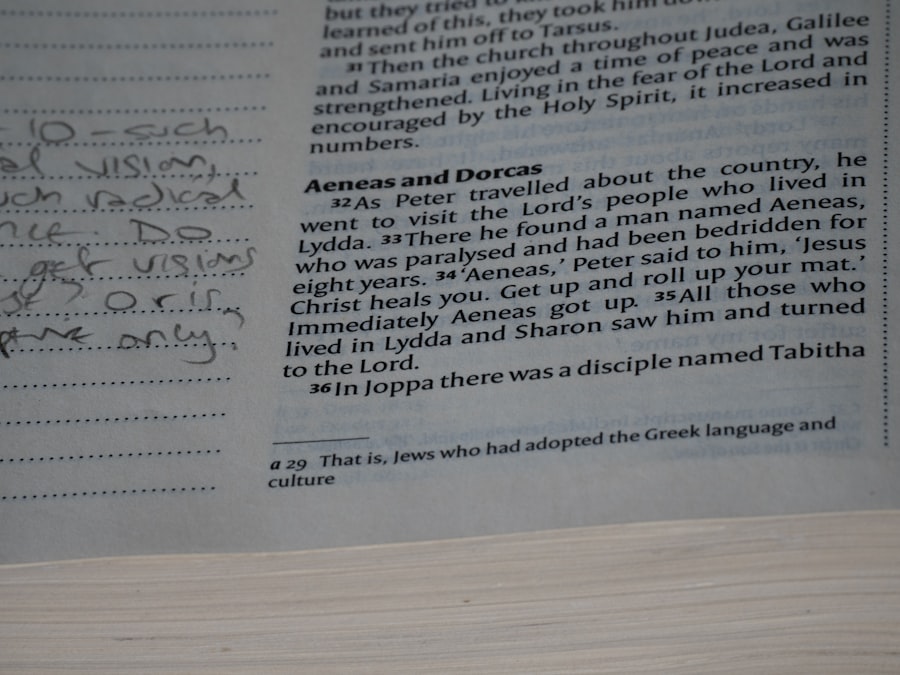 10 - such
vision,
radical
Do
get visions
? Or is
only?
but they tried to
learned of this, they took him
and sent him off to Tarsus.
31 Then the church throughout Judea, Galilee
and Samaria enjoyed a time of peace and was
strengthened. Living in the fear of the Lord and
encouraged by the Holy Spirit, it increased in
numbers.
Aeneas and Dorcas
32 As Peter travelled about the country, he
went to visit the Lord's people who lived in
Lydda. 33 There he found a man named Aeneas,
who was paralysed and had been bedridden for
eight years. 34 'Aeneas,' Peter said to him, 'Jesus
Christ heals you. Get up and roll up your mat.'
Immediately Aeneas got up. 35 All those who
lived in Lydda and Sharon saw him and turned
to the Lord.
36 In Joppa there was a disciple named Tabitha
a 29 That is, Jews who had adopted the Greek language and
culture